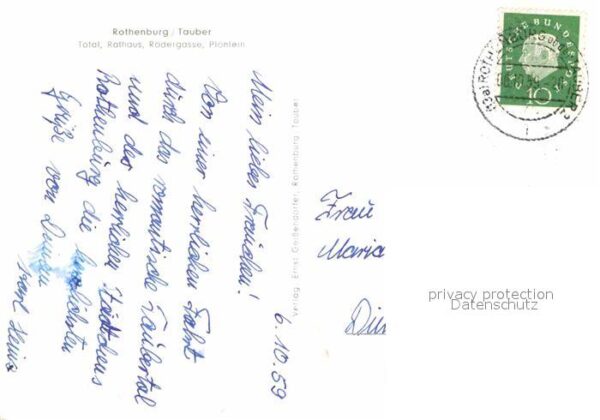 Rothenburg / Tauber
Total, Rathaus, Rödergasse, Plönlein
6.10.59
Mein liebes Frauchen!
Von einer herrlichen Fahrt
durch das romantische Taubertal
und des herrlichen Städtchens
Rothenburg die herzlichsten
Grüße von Deinem
Karl Heinz
Verlag Ernst Geißendörfer, Rothenburg / Tauber
DEUTSCHE BUNDESPOST
10
ROTHENBURG
TAUBER
Frau
Maria
privacy protection
Datenschutz